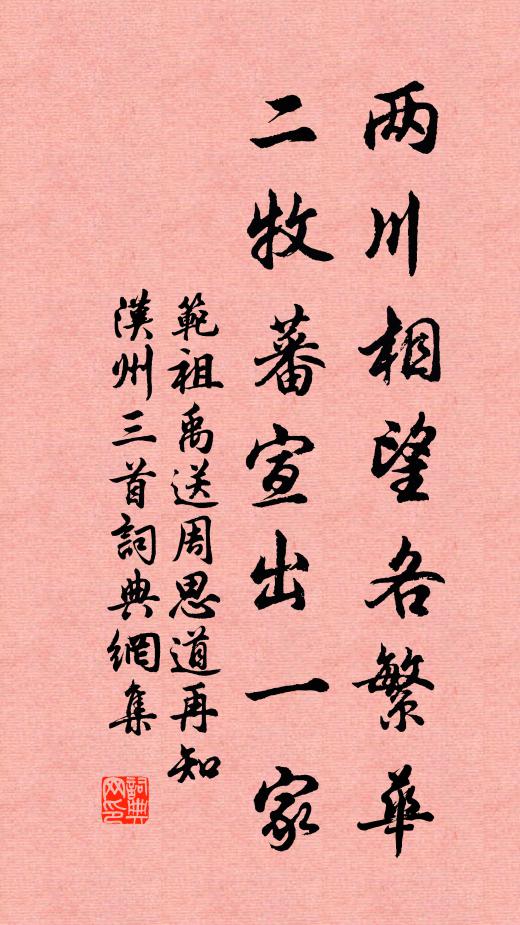 两川相望各繁華
二牧蕃宣出一家
範祖禹送周思道再知
漢州三首詞典網集
詞典網印